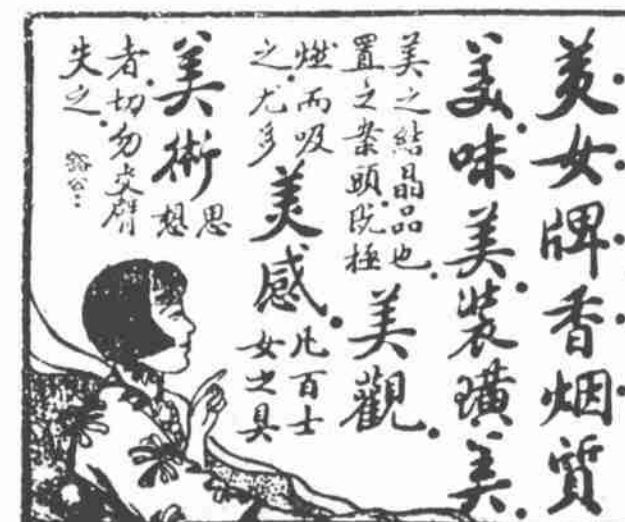 美女牌香烟質
美味美裝璜美
美之結晶品也
置之案頭既極
美觀
燃而吸
之尤多
美感
凡百士
女之具
美術
思
想
者切勿交臂
失之
豁公